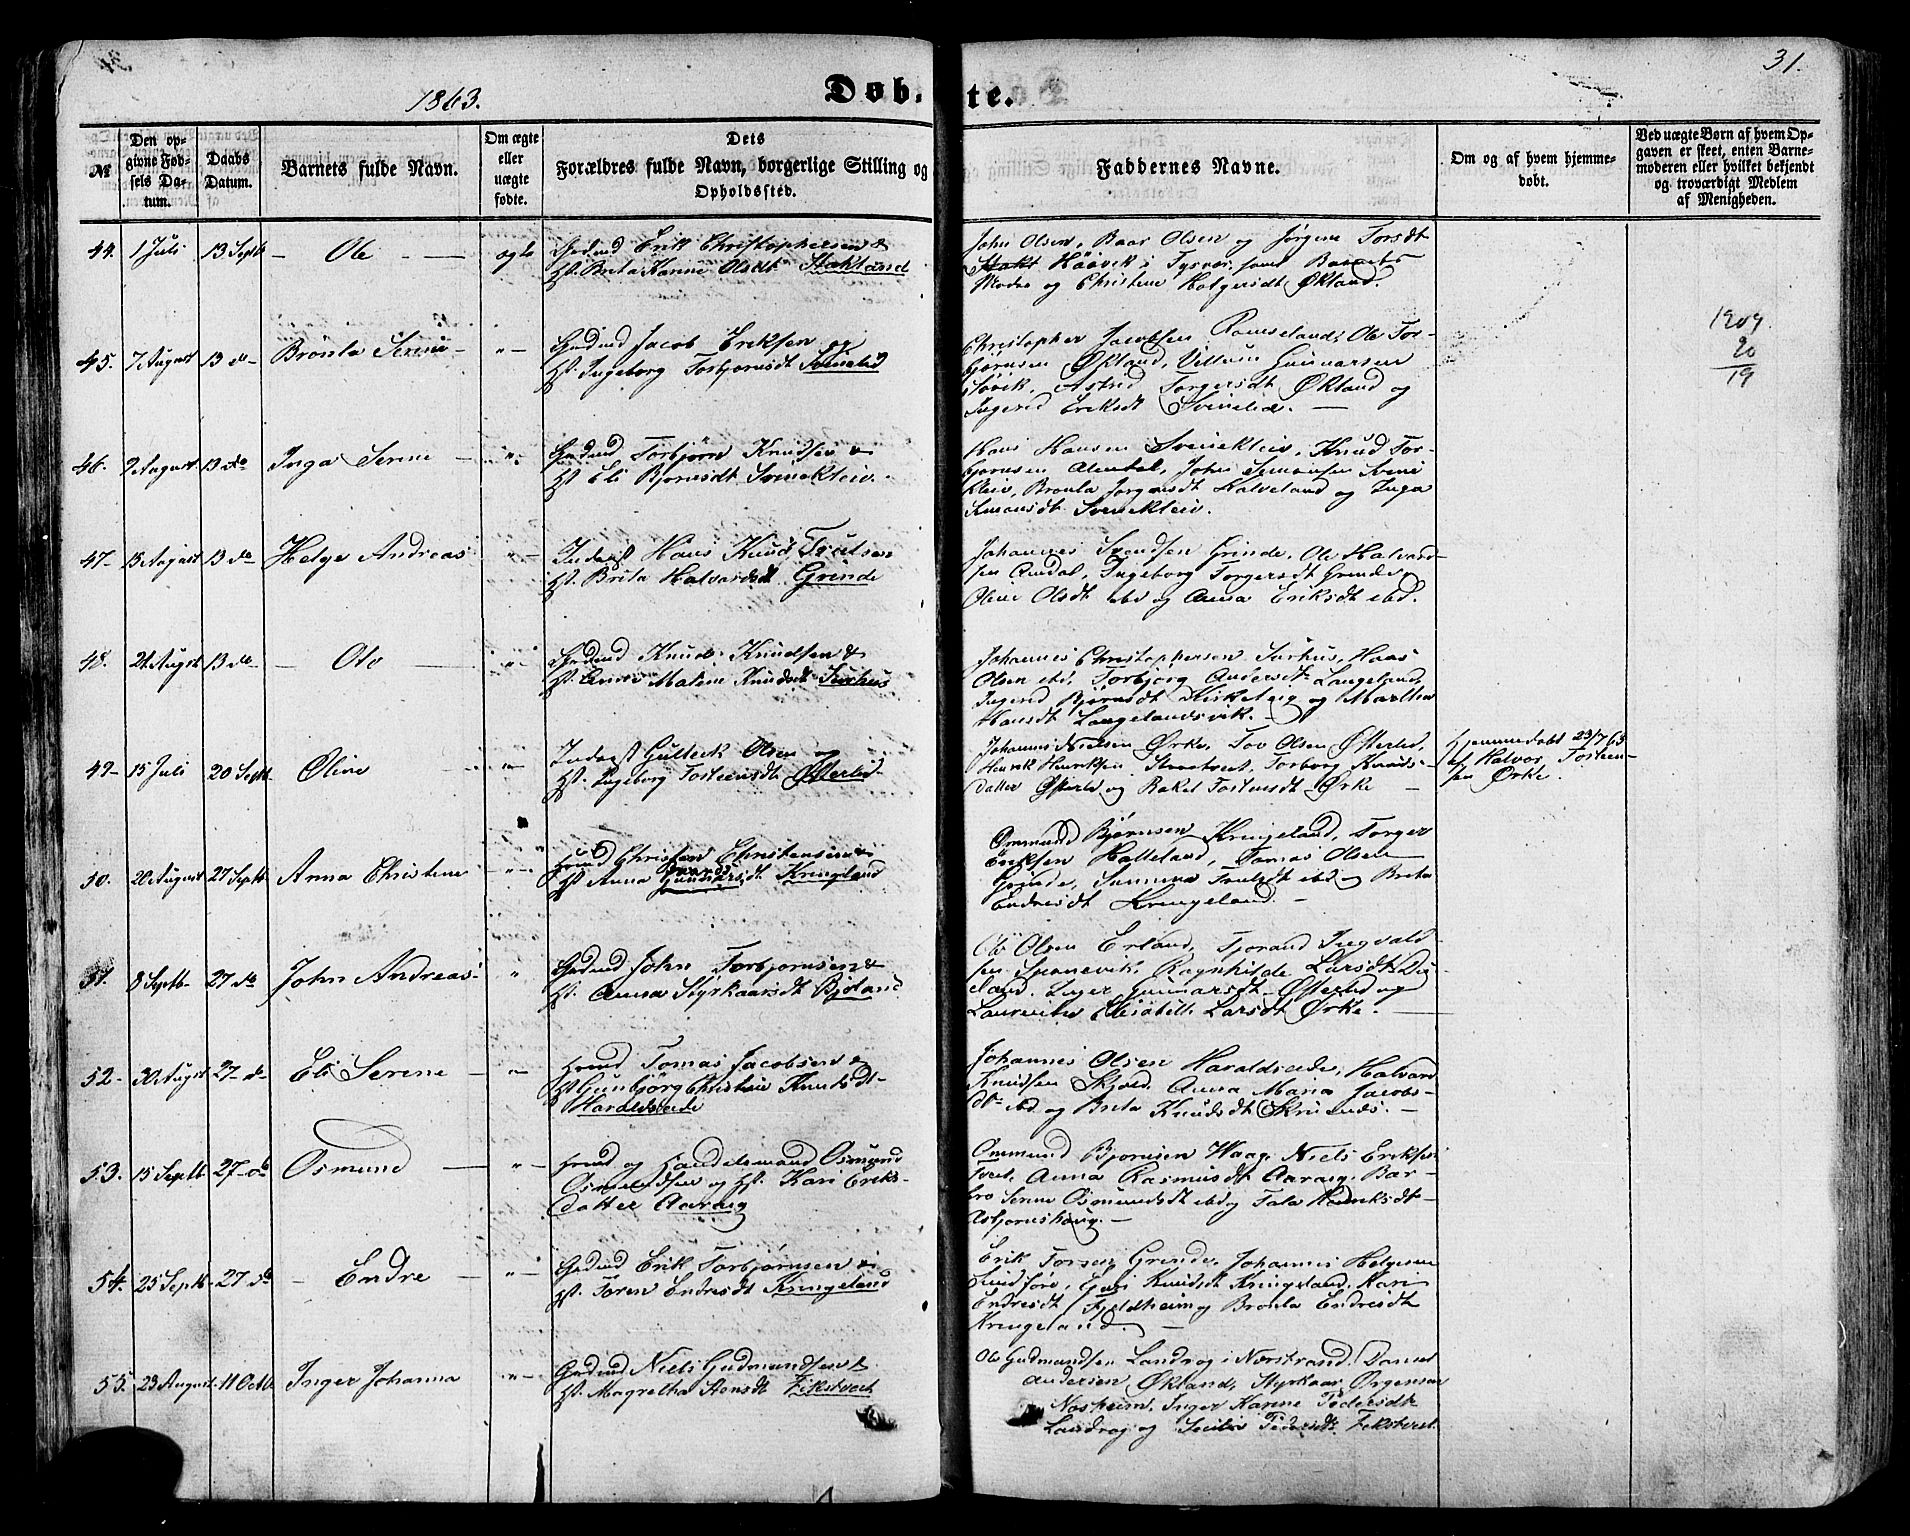 31.
1863. Døbte.
№
Den opgivne Fødsels Datum.
Daabs Datum.
Barnets fulde Navn.
Om ægte eller uægte fødte.
Dets Forældres fulde Navn, borgerlige Stilling og Opholdssted.
Faddernes Navne.
Om og af hvem hjemmedøbt.
Ved uægte Børn af hvem Opgaven er skeet, enten Barnemoderen eller hvilket bekjendt og troværdigt Medlem af Menigheden.
44. 1 Juli 13 Septb — Ole — ægte
Erik Christophersen &
H. Brita Karine Olsdt Stakland
John Olsen, Baar Olsen og Jørgine Torsdt
Høievik i Tysvær, samt Barnets
Moder og Christine Helgersdt Økland.
45. 7 August 13 do Bronla Serine "—
Gbdmd Jacob Eriksen og
H. Ingeborg Torbjørnsdt Svinelid
Christopher Jacobsen Ramseland, Ole Tor-
bjørnsen Økland, Villum Gunnarsen
Høvik, Astrid Torgersdt Økland og
Ingerid Eriksdt Svinelie. —
1909.
20
19
46. 2 August 13 do Inga Serine — "—
Gbdmd Torbjørn Knudsen &
H. Eli Bjørnsdt Svinekleiv.
Hans Hansen Svinekleiv, Knud Tor-
bjørnsen John Simonsen Svine
kleiv, Bronla Jørgensdt Halveland og Inga
Simonsdt Svinekleiv.
47. 13 August 13 do Helge Andreas "—
Inderst Hans Knud Trulsen
H. Brita Halvardsdt Grinde
Johannes Svendsen Grinde, Ole Halvard-
sen Ingeborg Torgersdt Grinde
Oline Olsdt ibd og Anna Eriksdt ibd.
48. 21 August 13 do — Oto — "—
Gbdmd Knud Knudsen &
H. Anne Malene Knudsdt Sørhus
Johannes Christophersen Sørhus, Haas
Olsen ibd, Torbjørg Andersdt Langeland,
Ingerid Bjørnsdt Kirketeig og Martha
Hansdt Langelandsvik. —
49— 15 Juli 20 Septb Oline — "—
Inderst Gulleik Olsen og
H. Ingeborg Torsteensdt Østerlid
Johannes Nielsen Ørke, Tov Olsen Østerlid,
Henrik Henriksen Torborg Knuds-
datter Østerlid og Rakel Torsteensdt Ørke —
Hjemmedøbt 23/7 63
af Halvor Torsteen-
sen Ørke.
50. 20 August 27 Septb Anna Christine "—
Hmd Christen Christensen &
H. Anna Gunnarsdt Kringeland
Ommund Bjørnsen Kringeland, Torger
Eriksen Halleland, Tomas Olsen
Grinde, Sunniva Trulsdt ibd og Brita
Endresdt Kringeland. —
51. 8 Septb 27 do John Andreas "
Gbdmd John Torbjørnsen &
H. Anna Styrkaarsdt Bjoland
Ole Olsen Erland, Tjorand Ingvald-
sen Spannevik, Ragnhilde Larsdt
land, Inger Gunnarsdt Østerlid og
Laurentze Elisabeth Larsdt Ørke. —
52— 30 August 27 do Eli Serine — "—
Hmd Tomas Jacobsen &
H. Gunbjørg Christine Knudsdt—
Haraldseide
Johannes Olsen Haraldseide, Halvard
Knudsen Skjold, Anna Maria Jacobs-
dtr ibd og Brita Knudsdt —
53. 15 Septb 27 do Osmund — "—
Hmd og Handelsmand Osmund
Osmundsen og H. Kari Eriks-
datter Aarvig
Ommund Bjørnsen Waage, Niels Eriksen
Tveit, Anna Rasmusdt Aarvig, Bar-
bro Serine Osmundsdt ibd og Tala Henriksdt
Asbjørnshaug. —
54. 25 Septb 27 do — Endre — "—
Gbdmd Erik Torbjørnsen &
H. Toren Endresdt Kringeland
Erik Torsen Grinde, Johannes Helgesen
Knudsdt Kringeland, Kari
Endresdt Fjeldheim og Bronla Endresdt
Kringeland. —
55. 23 August 11 Octb Inger Johanna "—
Gbdmd Niels Gudmundsen &
H. Magretha Aonsdt Eikstveit
Ole Gudmundsen Landvog i Nærstrand, Daniel
Andersen Økland, Styrkaar Ørgensen
Næsheim, Inger Karine Pedersdt
Landvog og Secilia Pedersdt Eikstveit.
4